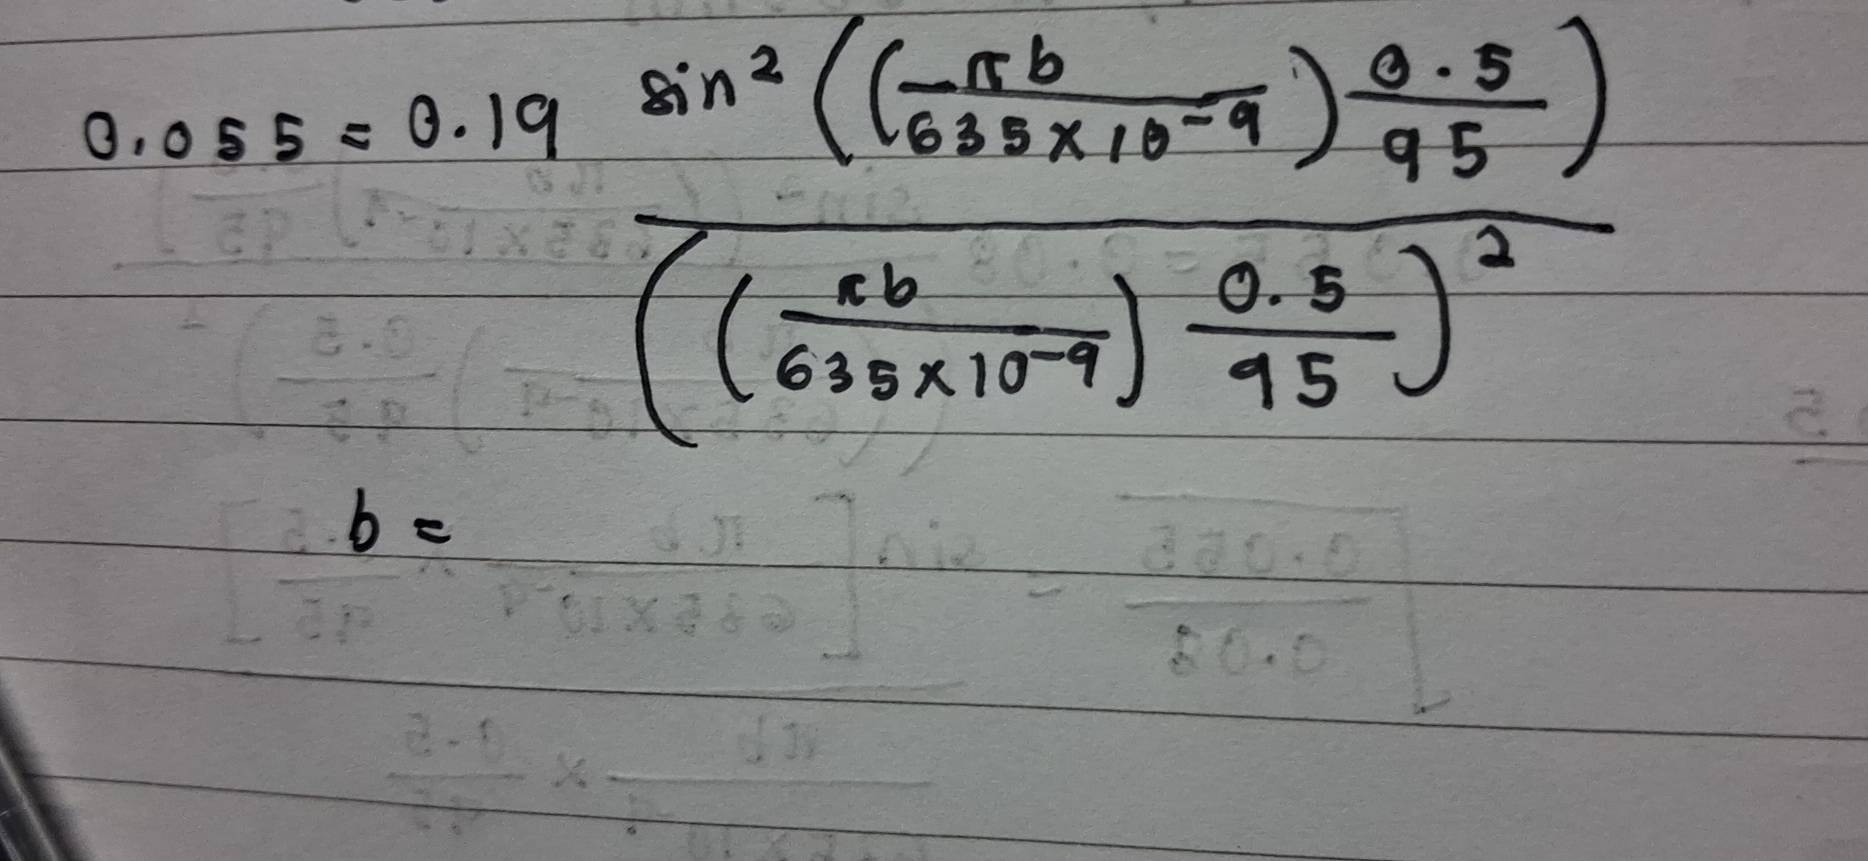 0.055 = 0.19 sin² ((πb / 635×10⁻⁹) 0.5 / 95) / ((πb / 635×10⁻⁹) 0.5 / 95)²
b =